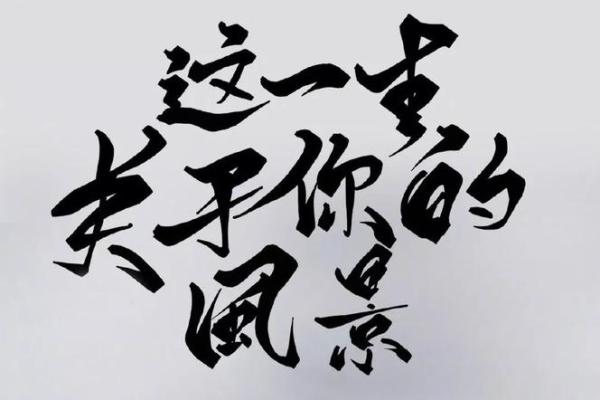 这一生
关于你的
风景